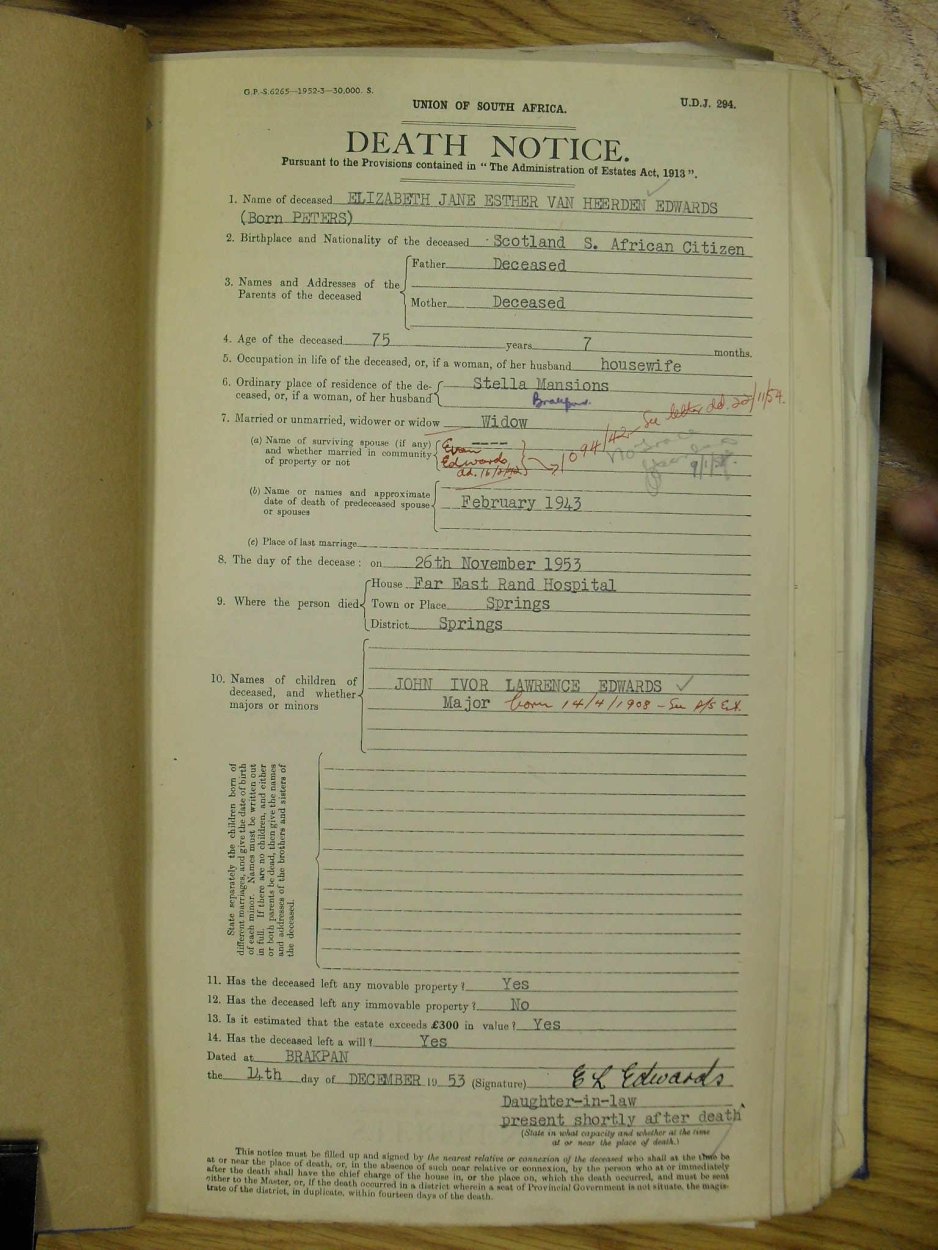 G.P.-S.6265—1952-3—30,000. S.
UNION OF SOUTH AFRICA.
U.D.J. 294.
DEATH NOTICE.
Pursuant to the Provisions contained in “ The Administration of Estates Act, 1913 ”.
1. Name of deceased ELIZABETH JANE ESTHER VAN HEERDEN EDWARDS
(Born PETERS)
2. Birthplace and Nationality of the deceased Scotland S. African Citizen
3. Names and Addresses of the Parents of the deceased
Father Deceased
Mother Deceased
4. Age of the deceased 75 years 7 months.
5. Occupation in life of the deceased, or, if a woman, of her husband housewife
6. Ordinary place of residence of the de- Stella Mansions
ceased, or, if a woman, of her husband Brakpan.
7. Married or unmarried, widower or widow Widow
See letter dd. 22/11/54.
(a) Name of surviving spouse (if any)
and whether married in community
of property or not
Evan
Edwards
dd. 16/2/42
1094/42
9/1/54.
(b) Name or names and approximate
date of death of predeceased spouse
or spouses
February 1943
(c) Place of last marriage
8. The day of the decease : on 26th November 1953
9. Where the person died
House Far East Rand Hospital
Town or Place Springs
District Springs
10. Names of children of
deceased, and whether
majors or minors
JOHN IVOR LAWRENCE EDWARDS
Major born 14/4/1908 - See
State separately the children born of
different marriages, and give the date of birth
of each minor. Names must be written out
in full. If there are no children, and either
or both parents be dead, then give the names
and addresses of the brothers and sisters of
the deceased.
11. Has the deceased left any movable property ? Yes
12. Has the deceased left any immovable property ? No
13. Is it estimated that the estate exceeds £300 in value ? Yes
14. Has the deceased left a will ? Yes
Dated at BRAKPAN
the 14th day of DECEMBER 19 53 (Signature) E L Edwards
Daughter-in-law
present shortly after death
(State in what capacity and whether at the time
at or near the place of death.)
This notice must be filled up and signed by the nearest relative or connexion of the deceased who shall at the time be
at or near the place of death, or, in the absence of such near relative or connexion, by the person who at or immediately
after the death shall have the chief charge of the house in, or the place on, which the death occurred, and must be sent
either to the Master, or, if the death occurred in a district wherein a seat of Provincial Government is not situate, the magis-
trate of the district, in duplicate, within fourteen days of the death.